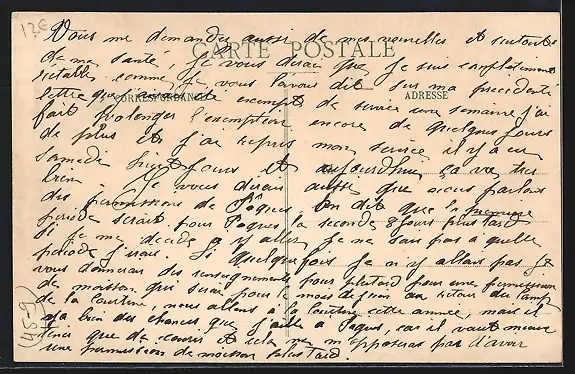 12E
Vous me demandez aussi de mes nouvelles et surtout
de ma santé, je vous dirai que je suis complètement
CARTE POSTALE
rétablie comme je vous l'avais dit sur ma précédente
lettre que exempt de service une semaine j'ai
CORRESPONDANCE
ADRESSE
fait prolonger l'exemption encore de quelques jours
de plus et j'ai repris mon service il y a eu
samedi huit jours et aujourd'hui ça va très
bien. Je vous dirai aussi que nous parlons
des permissions de Pâques on dit que la première
période serait pour Pâques la seconde 8 jours plus tard
Si je me décide à y aller je ne sais pas à quelle
période j'irai. Si quelquefois je n'y allais pas je
vous donnerai des renseignements pour plutard pour une permission
de moisson qui serai pour le mois de juin au retour du camp
de la Courtine, nous allons à la Courtine cette année, mais il
y a bien des chances que j'aille à Pâques, car il vaut mieux
tenir que de courir et cela ne m'opposeras pas d'avoir
une permission de moisson plus tard.
45-9